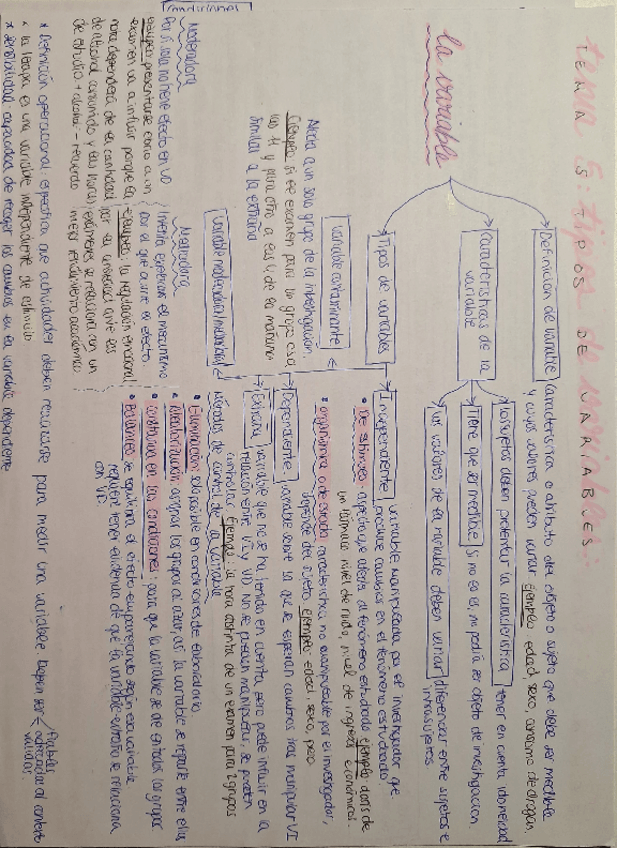 tema 5: tipos de variables.
TEMA 5 TIPOS DE VARIABLES
la variable
Definición de variable
característica o atributo del objeto o sujeto que debe ser medible
y cuyos valores pueden variar. Ejemplo: edad, sexo, consumo de drogas
Características de la
variable
los sujetos deben presentar la característica
tener en cuenta idoneidad
Tiene que ser medible
si no es así, no podría ser objeto de investigación
los valores de la variable deben variar
diferenciar entre sujetos e
intrasujetos.
Tipos de variables
Independiente
variable manipulada por el investigador que
produce cambios en el fenómeno estudiado.
• De estímulo: que afecta al fenómeno estudiado. Ejemplo: dosis de
un fármaco, nivel de ruido, nivel de ingresos económicos.
• organísmica o de estado: característica no manipulable por el investigador,
depende del sujeto. Ejemplo: edad, sexo, peso
Dependiente
variable sobre la que se esperan cambios tras manipular VI
Extraña
variable que no se ha tenido en cuenta pero puede influir en la
relación entre VI y VD. No se pueden manipular, se pueden
controlar. Ejemplo: la hora distinta de un examen para 2 grupos
métodos de control de la variable
• Eliminación: solo posible en condiciones de laboratorio
• Aleatorización: asignar los grupos al azar, así la variable se reparte entre ellos
• constancia en las condiciones: para que la variable se dé en todos los grupos
• Balanceo: se equilibra el efecto emparejando según esa variable,
requiere tener evidencia de que la variable extraña se relaciona
con VD.
variable contaminante
Afecta a un solo grupo de la investigación.
Ejemplo: si el examen para un grupo es a
las 11 y para otro a las 4 de la mañana
similar a la extraña
Variable moderadora/mediadora
Moderadora
Por sí sola no tiene efecto en VD
Ejemplo: presentarse ebrio a un
examen va a influir porque la
nota dependerá de la cantidad
de alcohol consumido y las horas
de estudio + alcohol - recuerdo
Mediadora
Intenta explicar el mecanismo
por el que ocurre el efecto.
Ejemplo: la regulación emocional
por la ansiedad ante los
exámenes se relaciona con un
mejor rendimiento académico
* Definición operacional: especifica qué actividades deben realizarse para medir una variable. Deben ser
Fiables
adecuadas al contexto
válidas.
* la terapia es una variable independiente de estímulo
* sensibilidad: capacidad de recoger los cambios en la variable dependiente